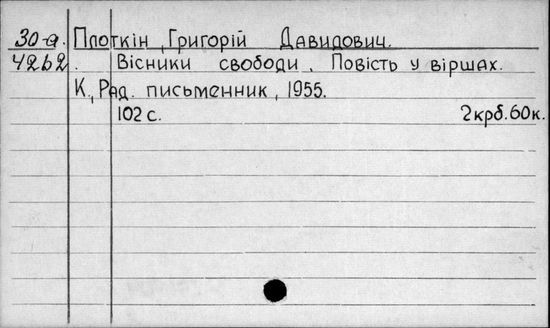 30-а. Плоткін, Григорій Давидович.
4262. Вісники свободи. Повість у віршах.
К., Рад. письменник, 1955.
102 с. 2 крб. 60 к.